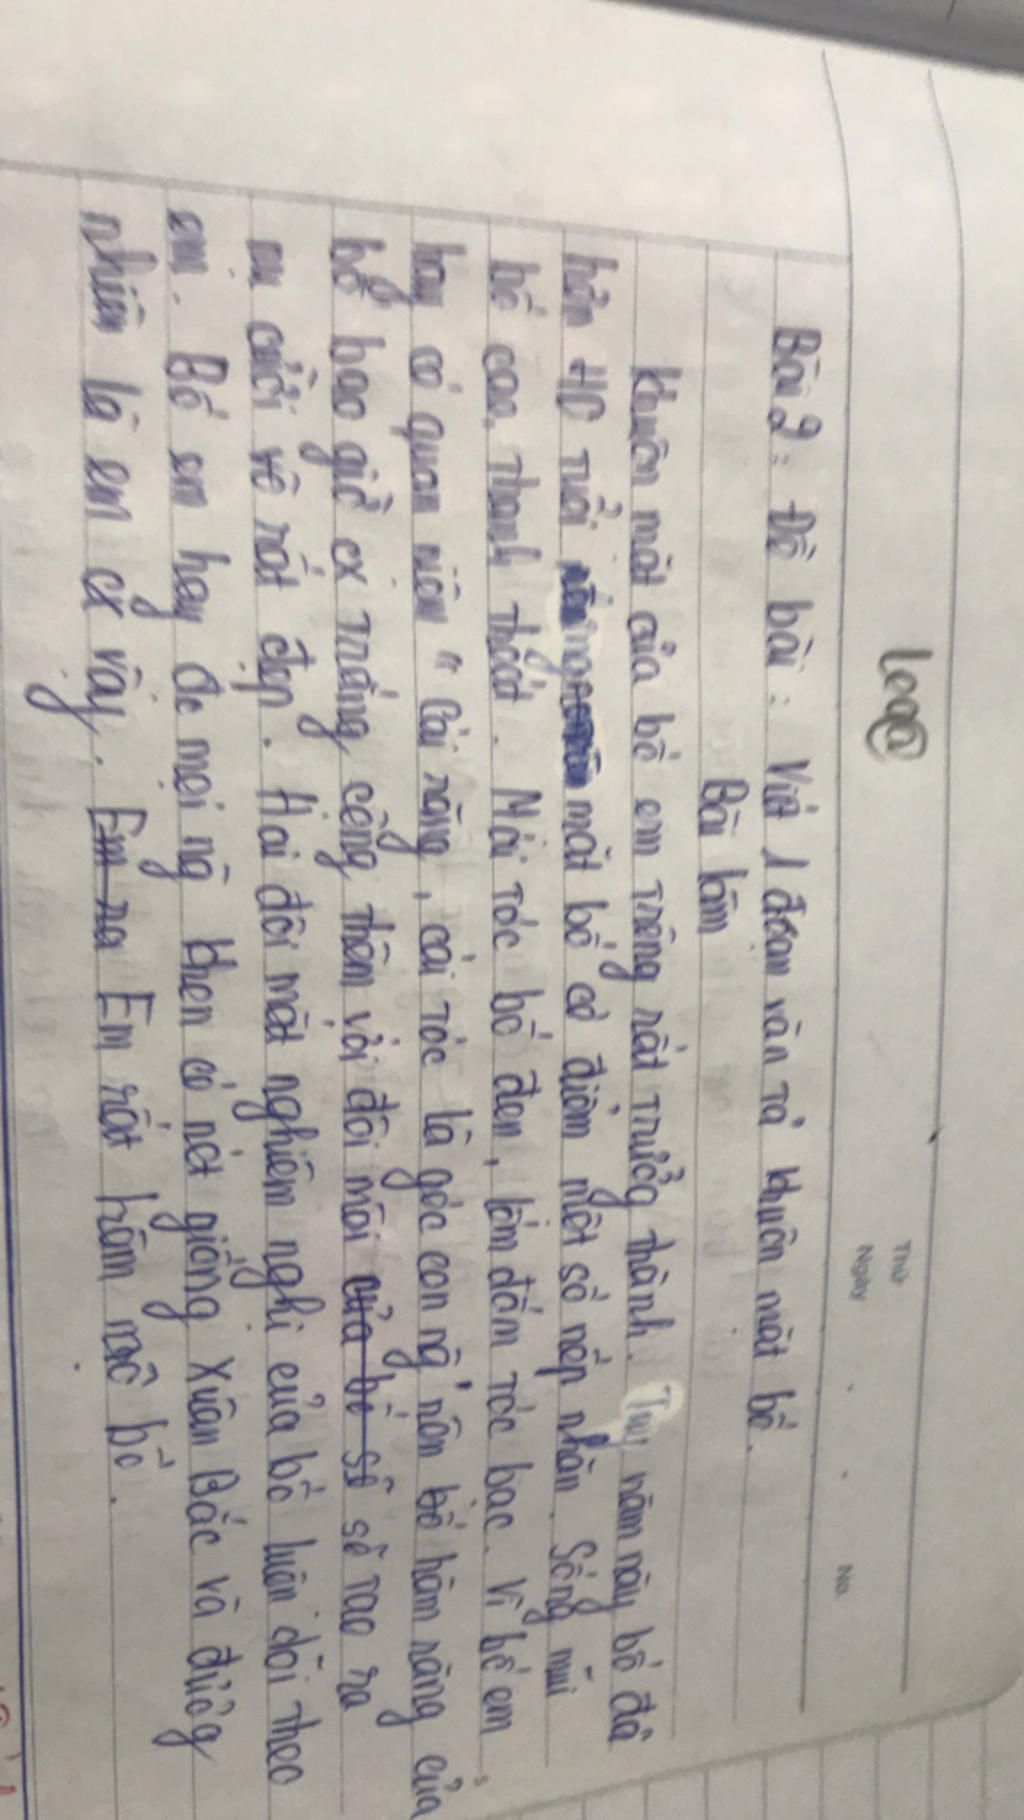 leq@
Thứ
Ngày
No.
Bài 2: Đề bài: Viết 1 đoạn văn tả khuôn mặt bố.
Bài làm
Khuôn mặt của bố em trông rất trưởg thành. Tuy năm nay bố đã
hơn 40 tuổi mặt bố có điểm một số nếp nhăn. Sống mũi
bố cao, thanh thoát. Mái tóc bố đen, lốm đốm tóc bạc. Vì bố em
hay có quan niệm "Cái răng, cái tóc là góc con ng̃" nên bố hàm răng của
bố bao giờ cx trắng cộng thêm với đôi môi của bố sẽ sẽ tạo ra
nụ cười vô rất đẹp. Hai đôi mắt nghiêm nghị của bố luôn dõi theo
em. Bố em hay đc mọi ng̃ khen có nét giống Xuân Bắc và đươg
nhiên là em cx vậy. Em rất Em rất hâm mộ bố.